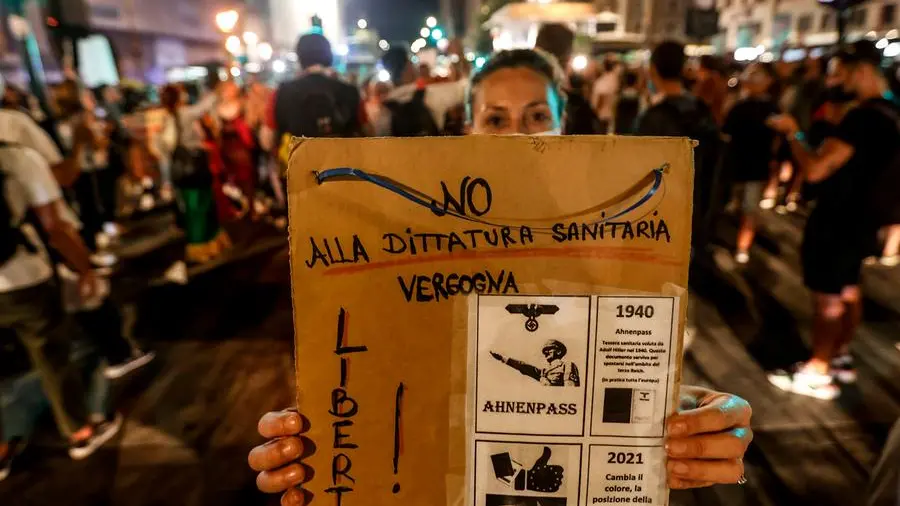 NO
ALLA DITTATURA SANITARIA
VERGOGNA
LIBERT
!
AHNENPASS
1940
Ahnenpass
Tessera sanitaria voluta da
Adolf Hitler nel 1940. Questo
documento serviva per
spostarsi nell'ambito del
terzo Reich.
(in pratica tutta l'europa)
2021
Cambia il
colore, la
posizione della